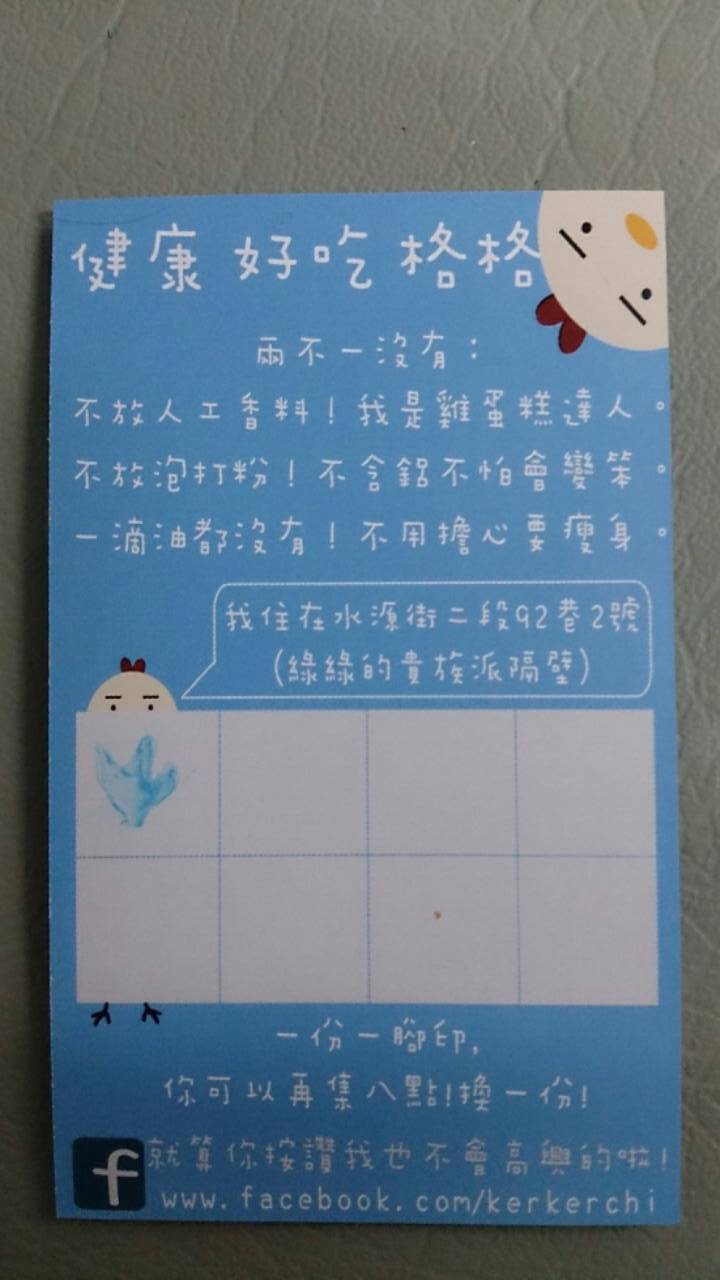 健康 好吃 格格
兩不一沒有：
不放人工香料！我是雞蛋糕達人。
不放泡打粉！不含鋁不怕會變笨。
一滴油都沒有！不用擔心要瘦身。
我住在水源街二段92巷2號
(綠綠的貴族派隔壁)
一份一腳印,
你可以再集八點!換一份!
f 就算你按讚我也不會高興的啦!
www.facebook.com/kerkerchi